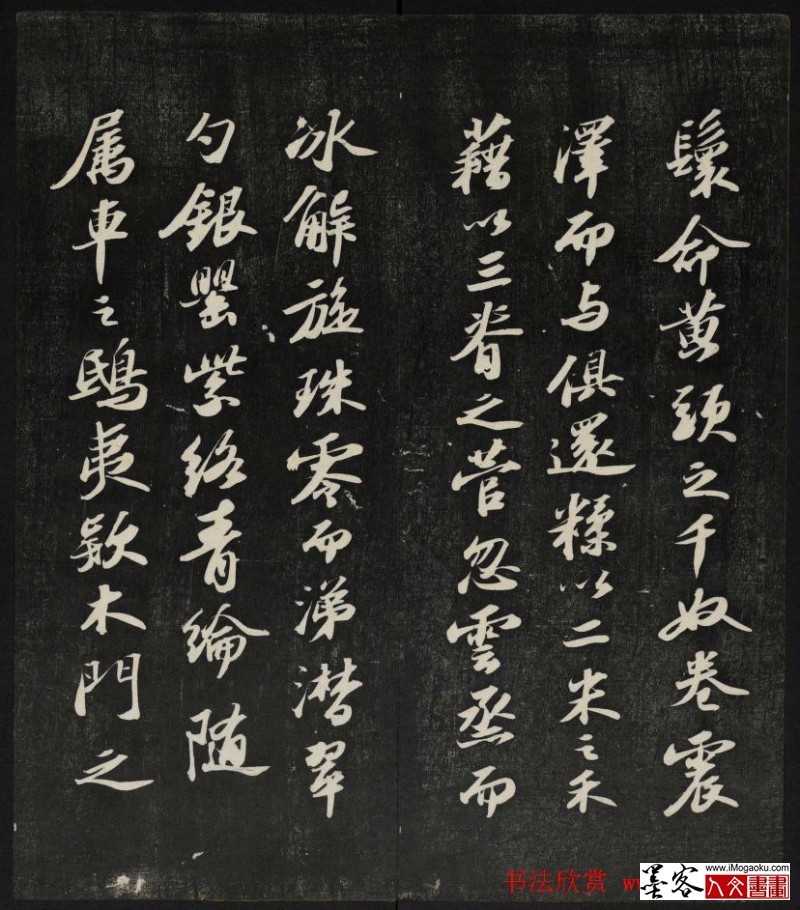 鬟命黄頭之千奴卷震
澤而与俱還糅以二米之禾
藉以三脊之菅忽雲烝而
冰解旋珠零而涕潸翠
勺銀罌紫絡青綸随
属車之鴟夷款木門之
书法欣赏
墨客
www.iMogaoku.com
人文書畫